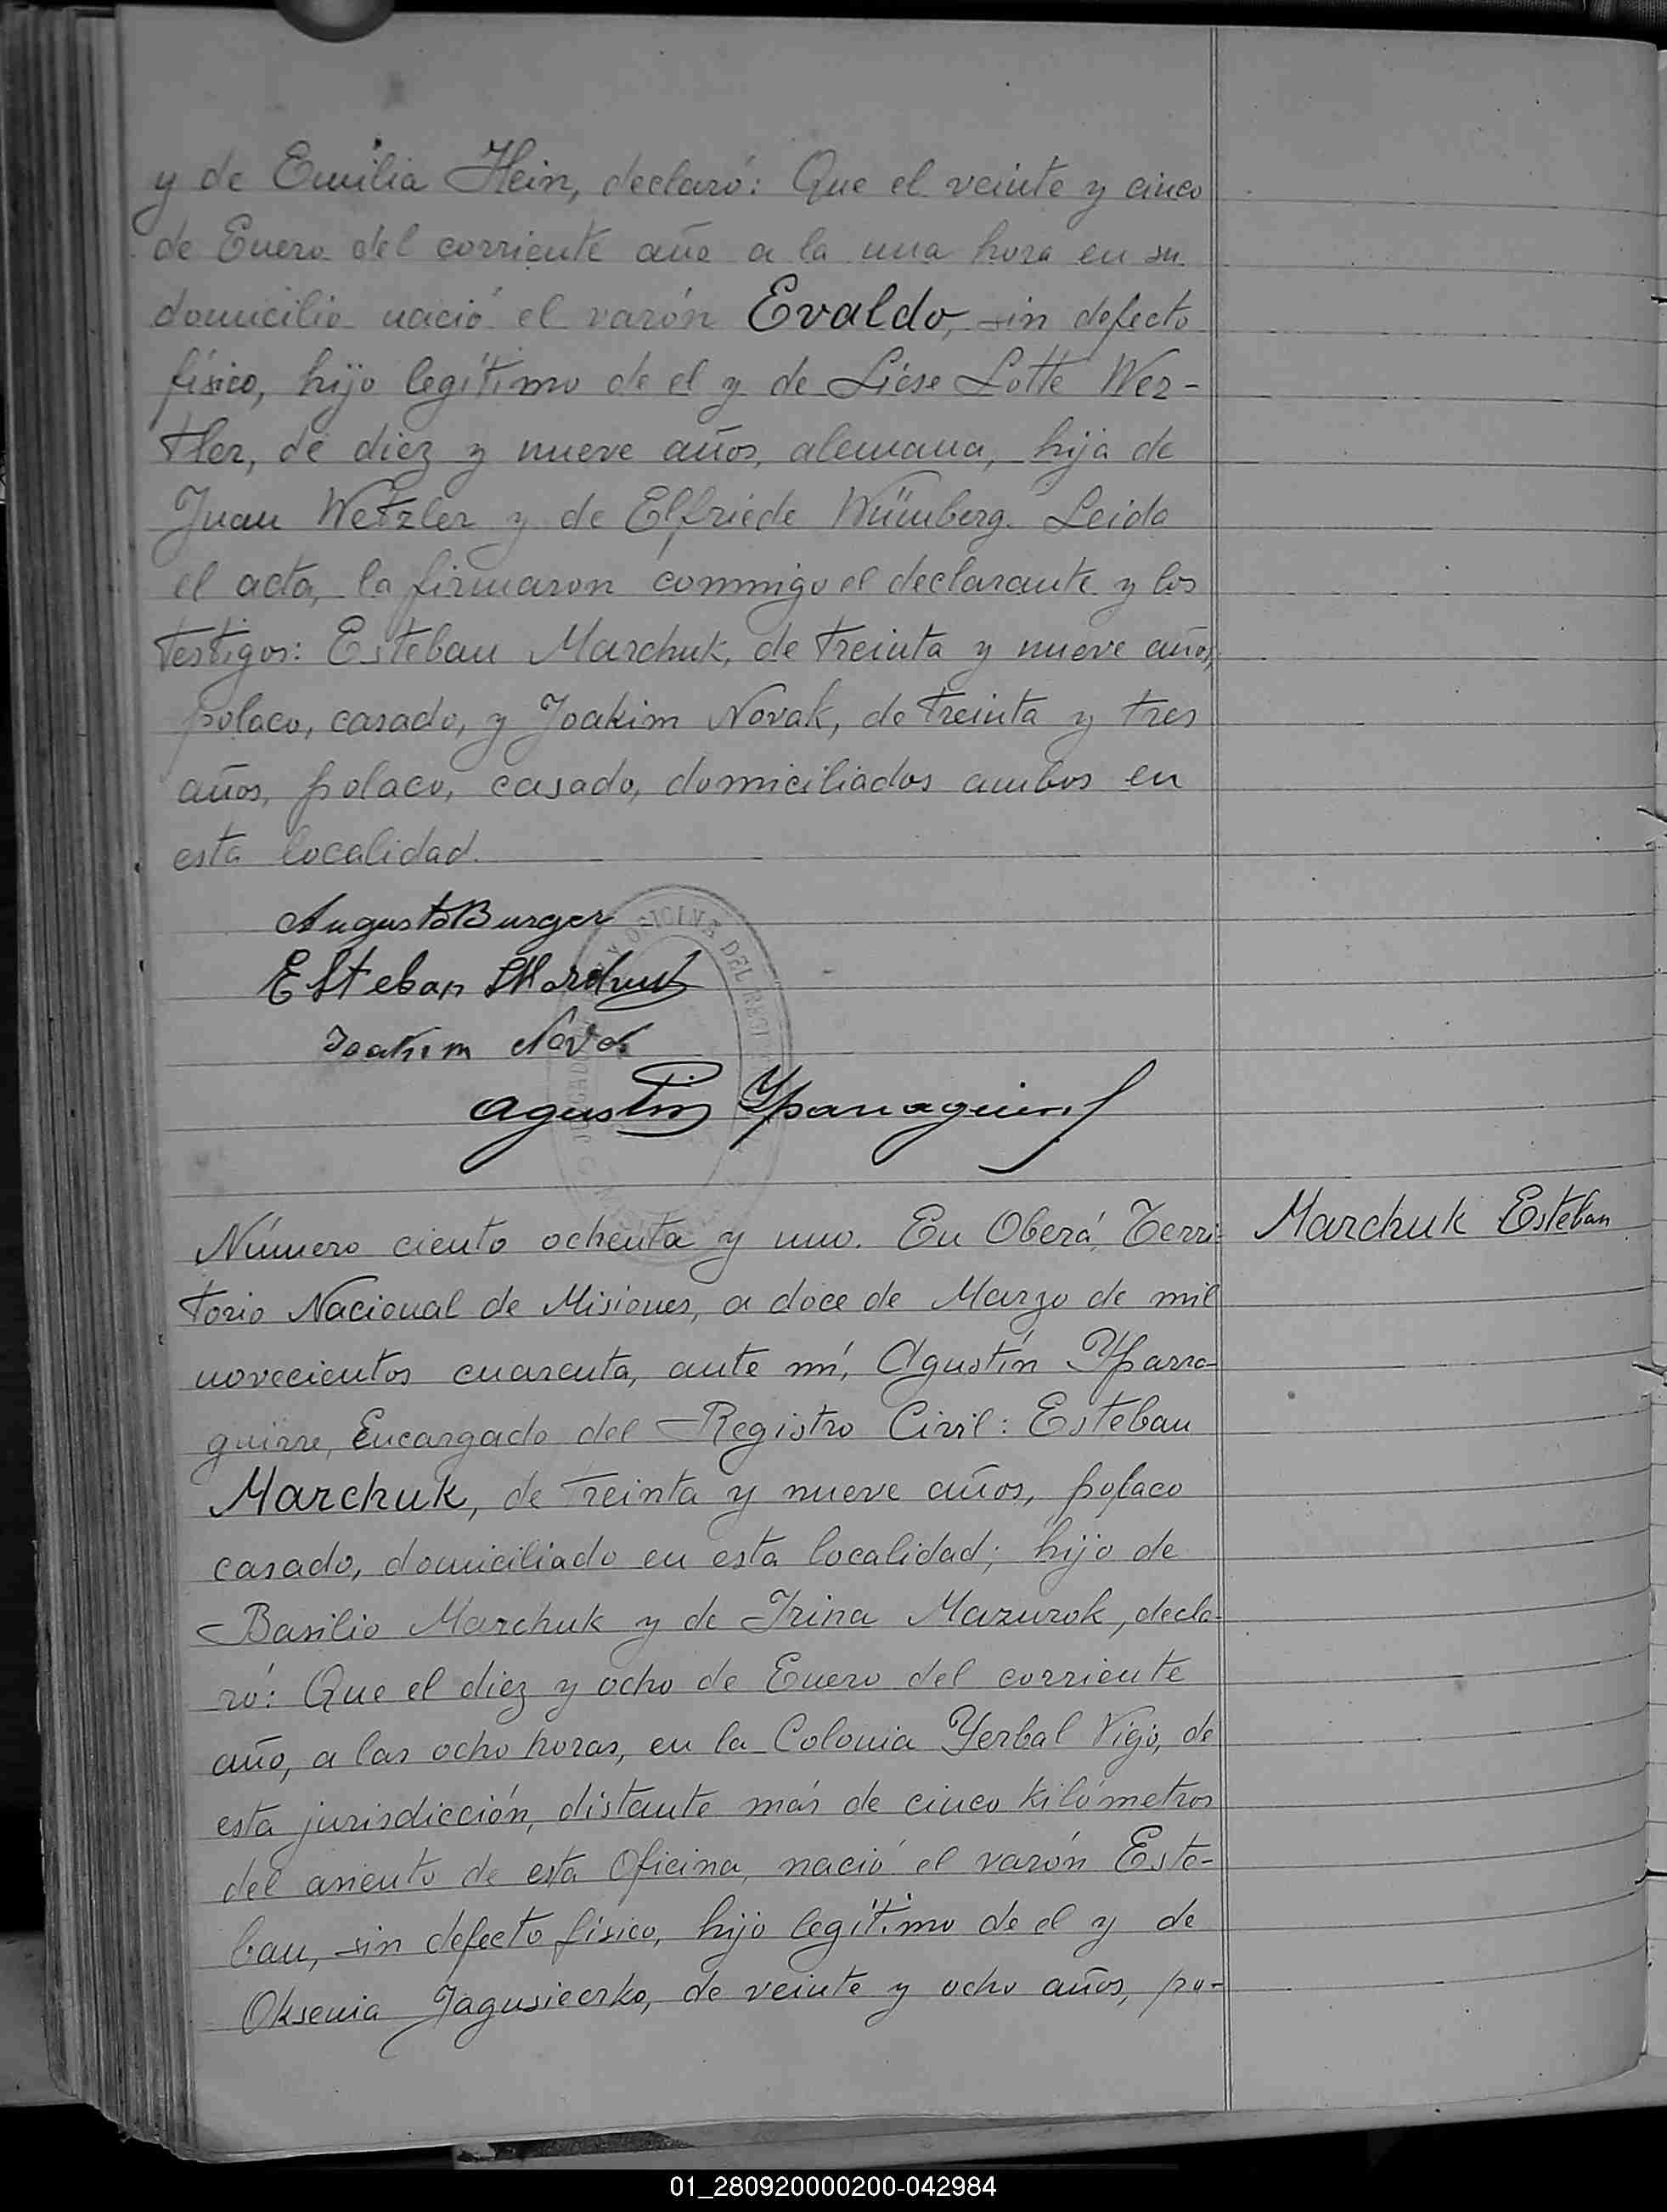 y de Emilia Hein, declaró: Que el veinte y cinco
de Enero del corriente año a la una hora en su
domicilio nació el varón Evaldo, sin defecto
físico, hijo legítimo de el y de Liese Lotte Wer-
tler, de diez y nueve años, alemana, hija de
Juan Wetzler y de Elfriede Würmberg. Leida
el acta, la firmaron conmigo el declarante y los
testigos: Esteban Marchuk, de treinta y nueve años,
polaco, casado, y Joakim Novak, de treinta y tres
años, polaco, casado, domiciliados ambos en
esta localidad.
Augusto Burger
Esteban Marchuk
Joakim Novak
Agustin Yparraguirre
Número ciento ochenta y uno. En Oberá, Terri-
torio Nacional de Misiones, a doce de Marzo de mil
novecientos cuarenta, ante mí, Agustín Yparra-
guirre, Encargado del Registro Civil: Esteban
Marchuk, de treinta y nueve años, polaco
casado, domiciliado en esta localidad; hijo de
Basilio Marchuk y de Irina Mazurok, decla-
ró: Que el diez y ocho de Enero del corriente
año, a las ocho horas, en la Colonia Yerbal Viejo, de
esta jurisdicción, distante más de cinco kilómetros
del asiento de esta Oficina, nació el varón Este-
ban, sin defecto físico, hijo legítimo de el y de
Oksenia Jagusieerko, de veinte y ocho años, po-
Marchuk Esteban
01_280920000200-042984